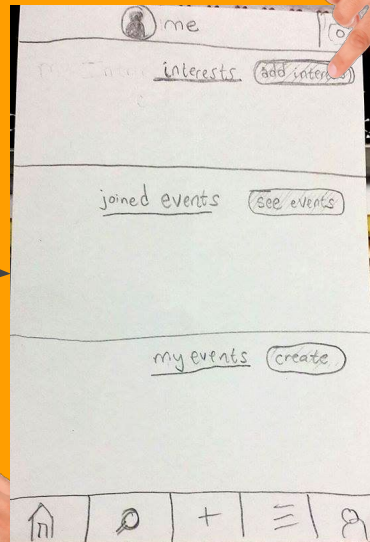 me
interests add interest
joined events see events
my events create